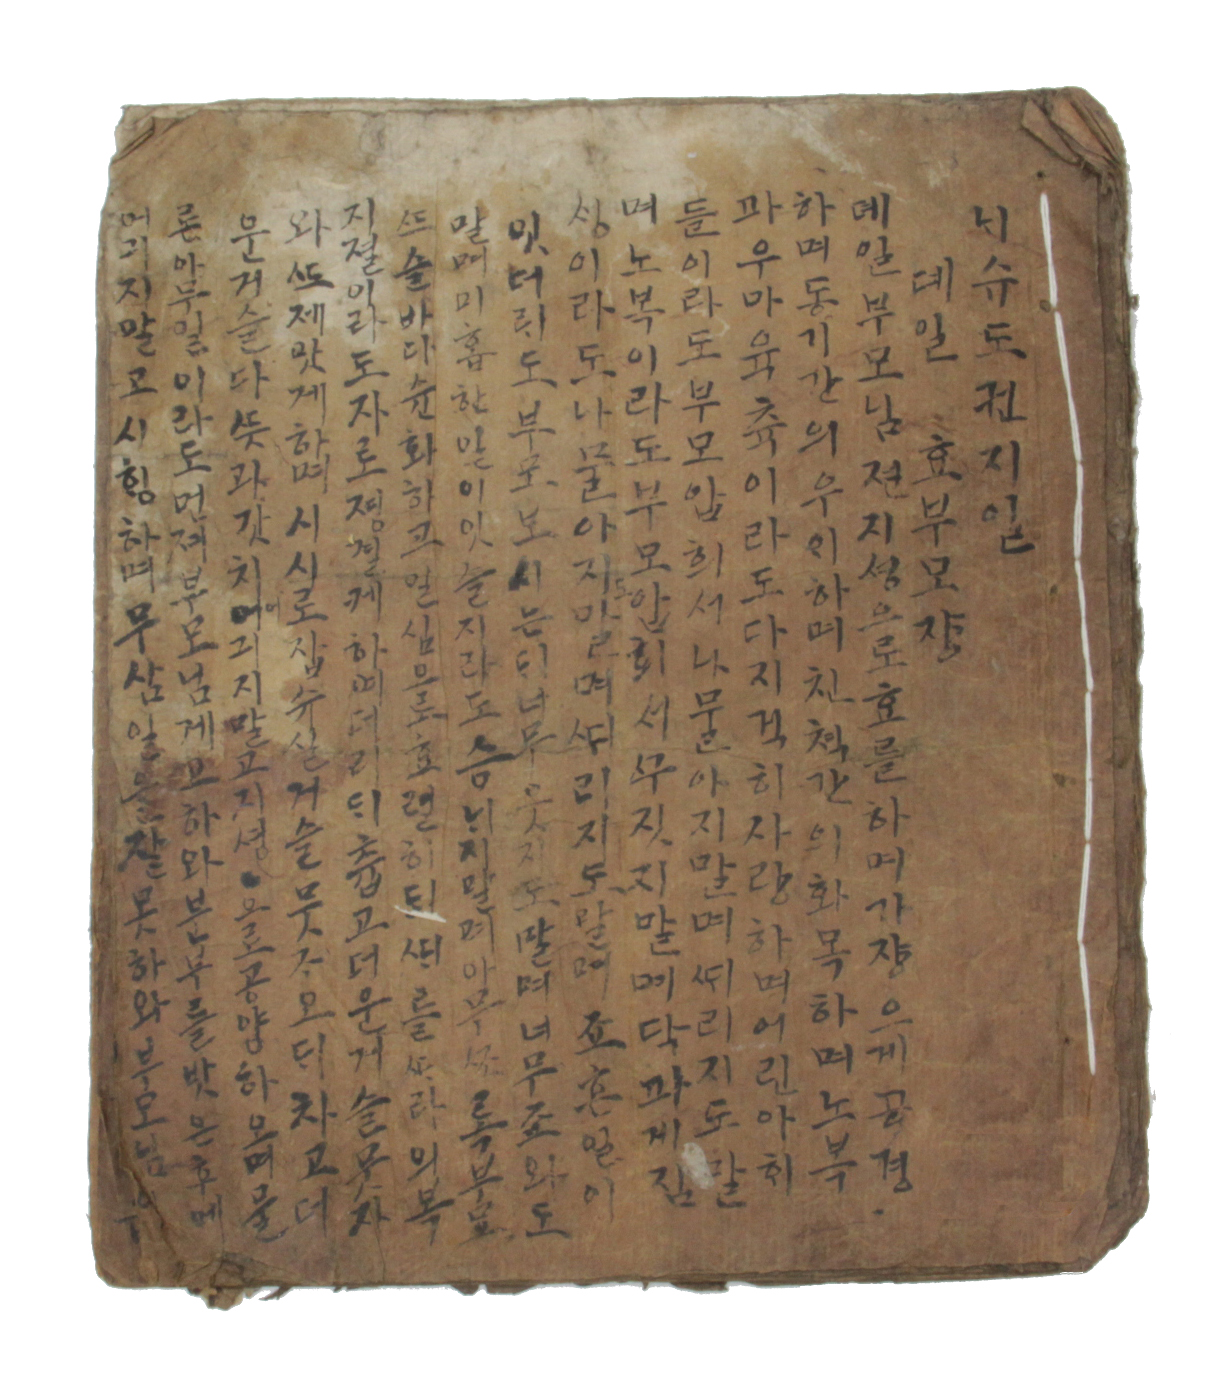 늬슈도젼지일
뎨일 효부모쟝
뎨일부모님젼지셩으로효를하며가쟝으게공경
하며동기간의우이하며친쳑간의화목하며노복
과우마육츅이라도다지극히사랑하며어린아희
들이라도부모압희셔나물아지말며ᄯᆡ리지도말
며노복이라도부모압희셔무짓지말며닥과게짐
싱이라도나물아지말며ᄯᆡ리지도말며죠흔일이
잇더리도부모보시는ᄃᆡ너무웃지도말며너무죠와도
말며미흡한말이잇슬지라도승늬지말며아무ᄶᅩ록부모
ᄯᅳ슬바다슌화하고일심으로효련히ᄃᆡᄯᅢ를ᄯᅡ라의복
지졀이라도자로졍결케하며더리ᄃᆡ츕고더운거슬무자
와ᄯᅩ졔맛게하며시시로잡슈실거슬뭇자오ᄃᆡ차고더
운거슬다ᄯᅳᆺ과갓치어긔지말고지셩으로공양하오며물
론아무일이라도먼져부모님게고하와분부를밧은후에
어긔지말고시힝하며무삼일을잘못하와부모님